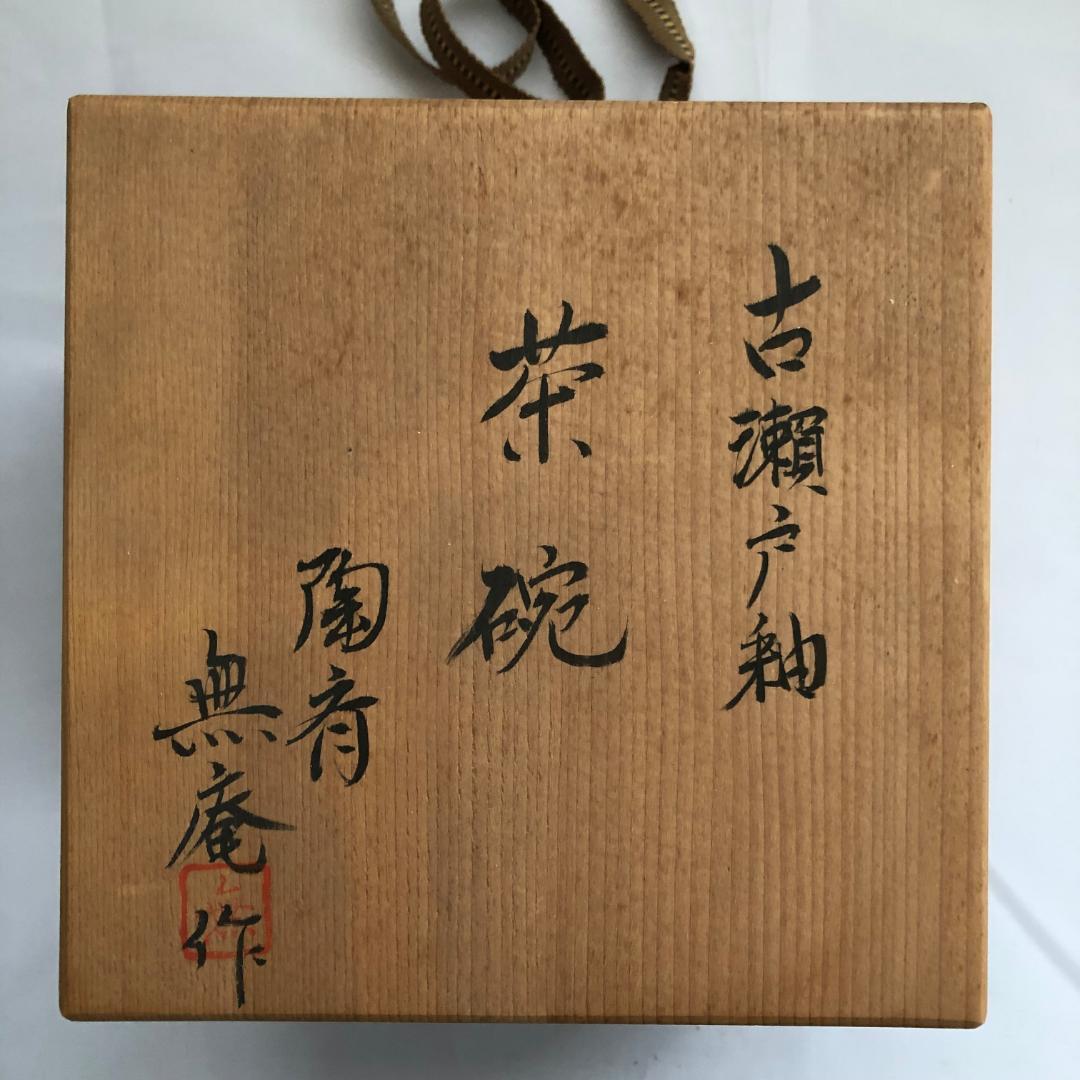 古瀬戸釉
茶碗
陶斉
無庵作